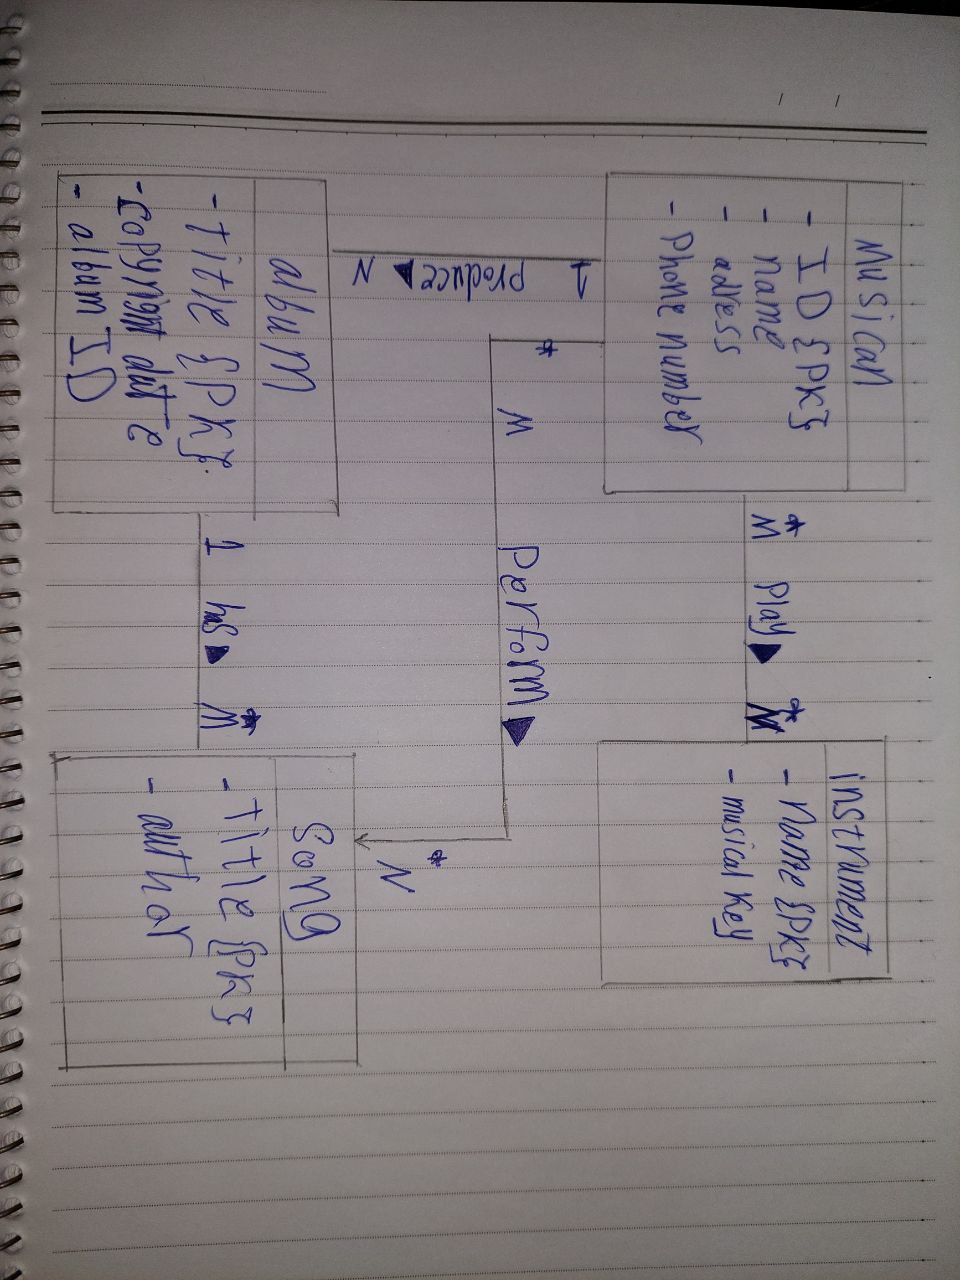 Musican
- ID {PK}
- name
- adress
- Phone number
instrument
- Name {PK}
- musical key
* *
M Play ▶ M
1 produce ▶ N
*
M Perform ▶
*
N
album
- Title {PK}
- copyright date
- album ID
*
1 has ▶ M
song
- Title {PK}
- author